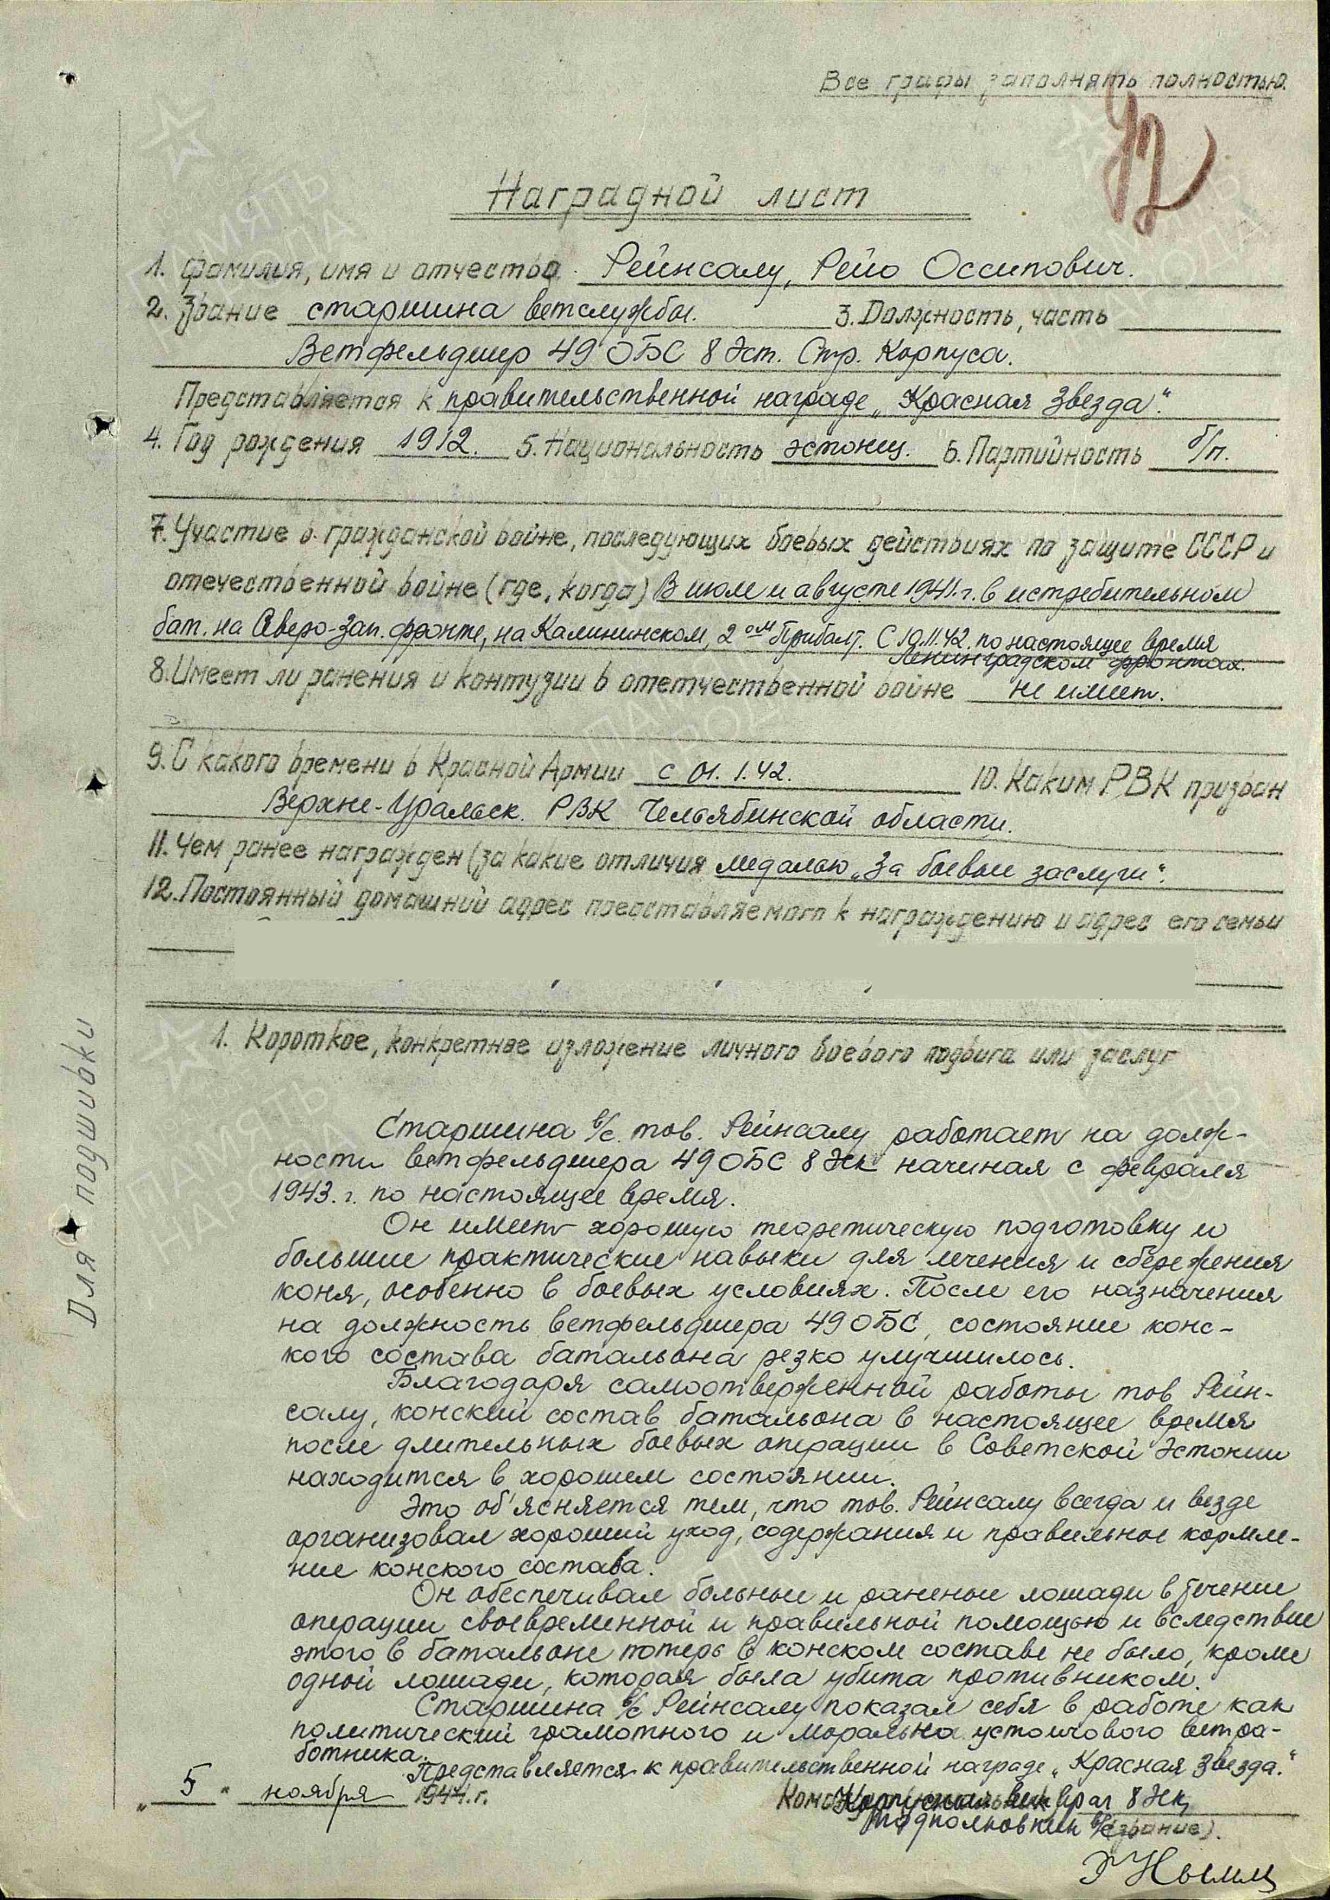 Все графы заполнять полностью.
92
Наградной лист
1. Фамилия, имя и отчество Рейнсалу, Рейо Оссипович.
2. Звание старшина ветслужбы. 3. Должность, часть
Ветфельдшер 49 ОБС 8 Эст. Стр. Корпуса.
Представляется к правительственной награде „Красная Звезда“.
4. Год рождения 1912. 5. Национальность эстонец. 6. Партийность б/п.
7. Участие в гражданской войне, последующих боевых действиях по защите СССР и
отечественной войне (где, когда) В июле и августе 1941 г. в истребительном
бат. на Северо-Зап. фронте, на Калининском, 2ом Прибалт. С 10.11.42. по настоящее время
Ленинградском фронтах.
8. Имеет ли ранения и контузии в отетчественной войне не имеет.
9. С какого времени в Красной Армии с 01.1.42. 10. Каким РВК призван
Верхне-Уральск. РВК Челябинской области.
11. Чем ранее награжден (за какие отличия медалью „За боевые заслуги“.
12. Постоянный домашний адрес представляемого к награждению и адрес его семьи
1. Короткое, конкретное изложение личного боевого подвига или заслуг
Старшина в/с. тов. Рейнсалу работает на долж-
ности ветфельдшера 49 ОБС 8 Эск начиная с февраля
1943 г. по настоящее время.
Он имеет хорошую теоретическую подготовку и
большие практические навыки для лечения и сбережения
коня, особенно в боевых условиях. После его назначения
на должность ветфельдшера 49 ОБС, состояние конс-
кого состава батальона резко улучшилось.
Благодаря самоотверженной работы тов Рейн-
салу, конский состав батальона в настоящее время
после длительных боевых операции в Советской Эстонии
находится в хорошем состоянии.
Это об'ясняется тем, что тов. Рейнсалу всегда и везде
организовал хороший уход, содержания и правильное кормле-
ние конского состава.
Он обеспечивал больные и раненые лошади в течение
операции своевременной и правильной помощью и вследствие
этого в батальоне потерь в конском составе не было, кроме
одной лошади, которая была убита противником.
Старшина в/с Рейнсалу показал себя в работе как
политический грамотного и морально устойчового ветра-
ботника.
Представляется к правительственной награде „Красная Звезда.“
„5“ ноября 1944 г. Корпусной вет врач 8 Эск
подполковник в/с (звание).
Для подшивки
ПАМЯТЬ НАРОДА